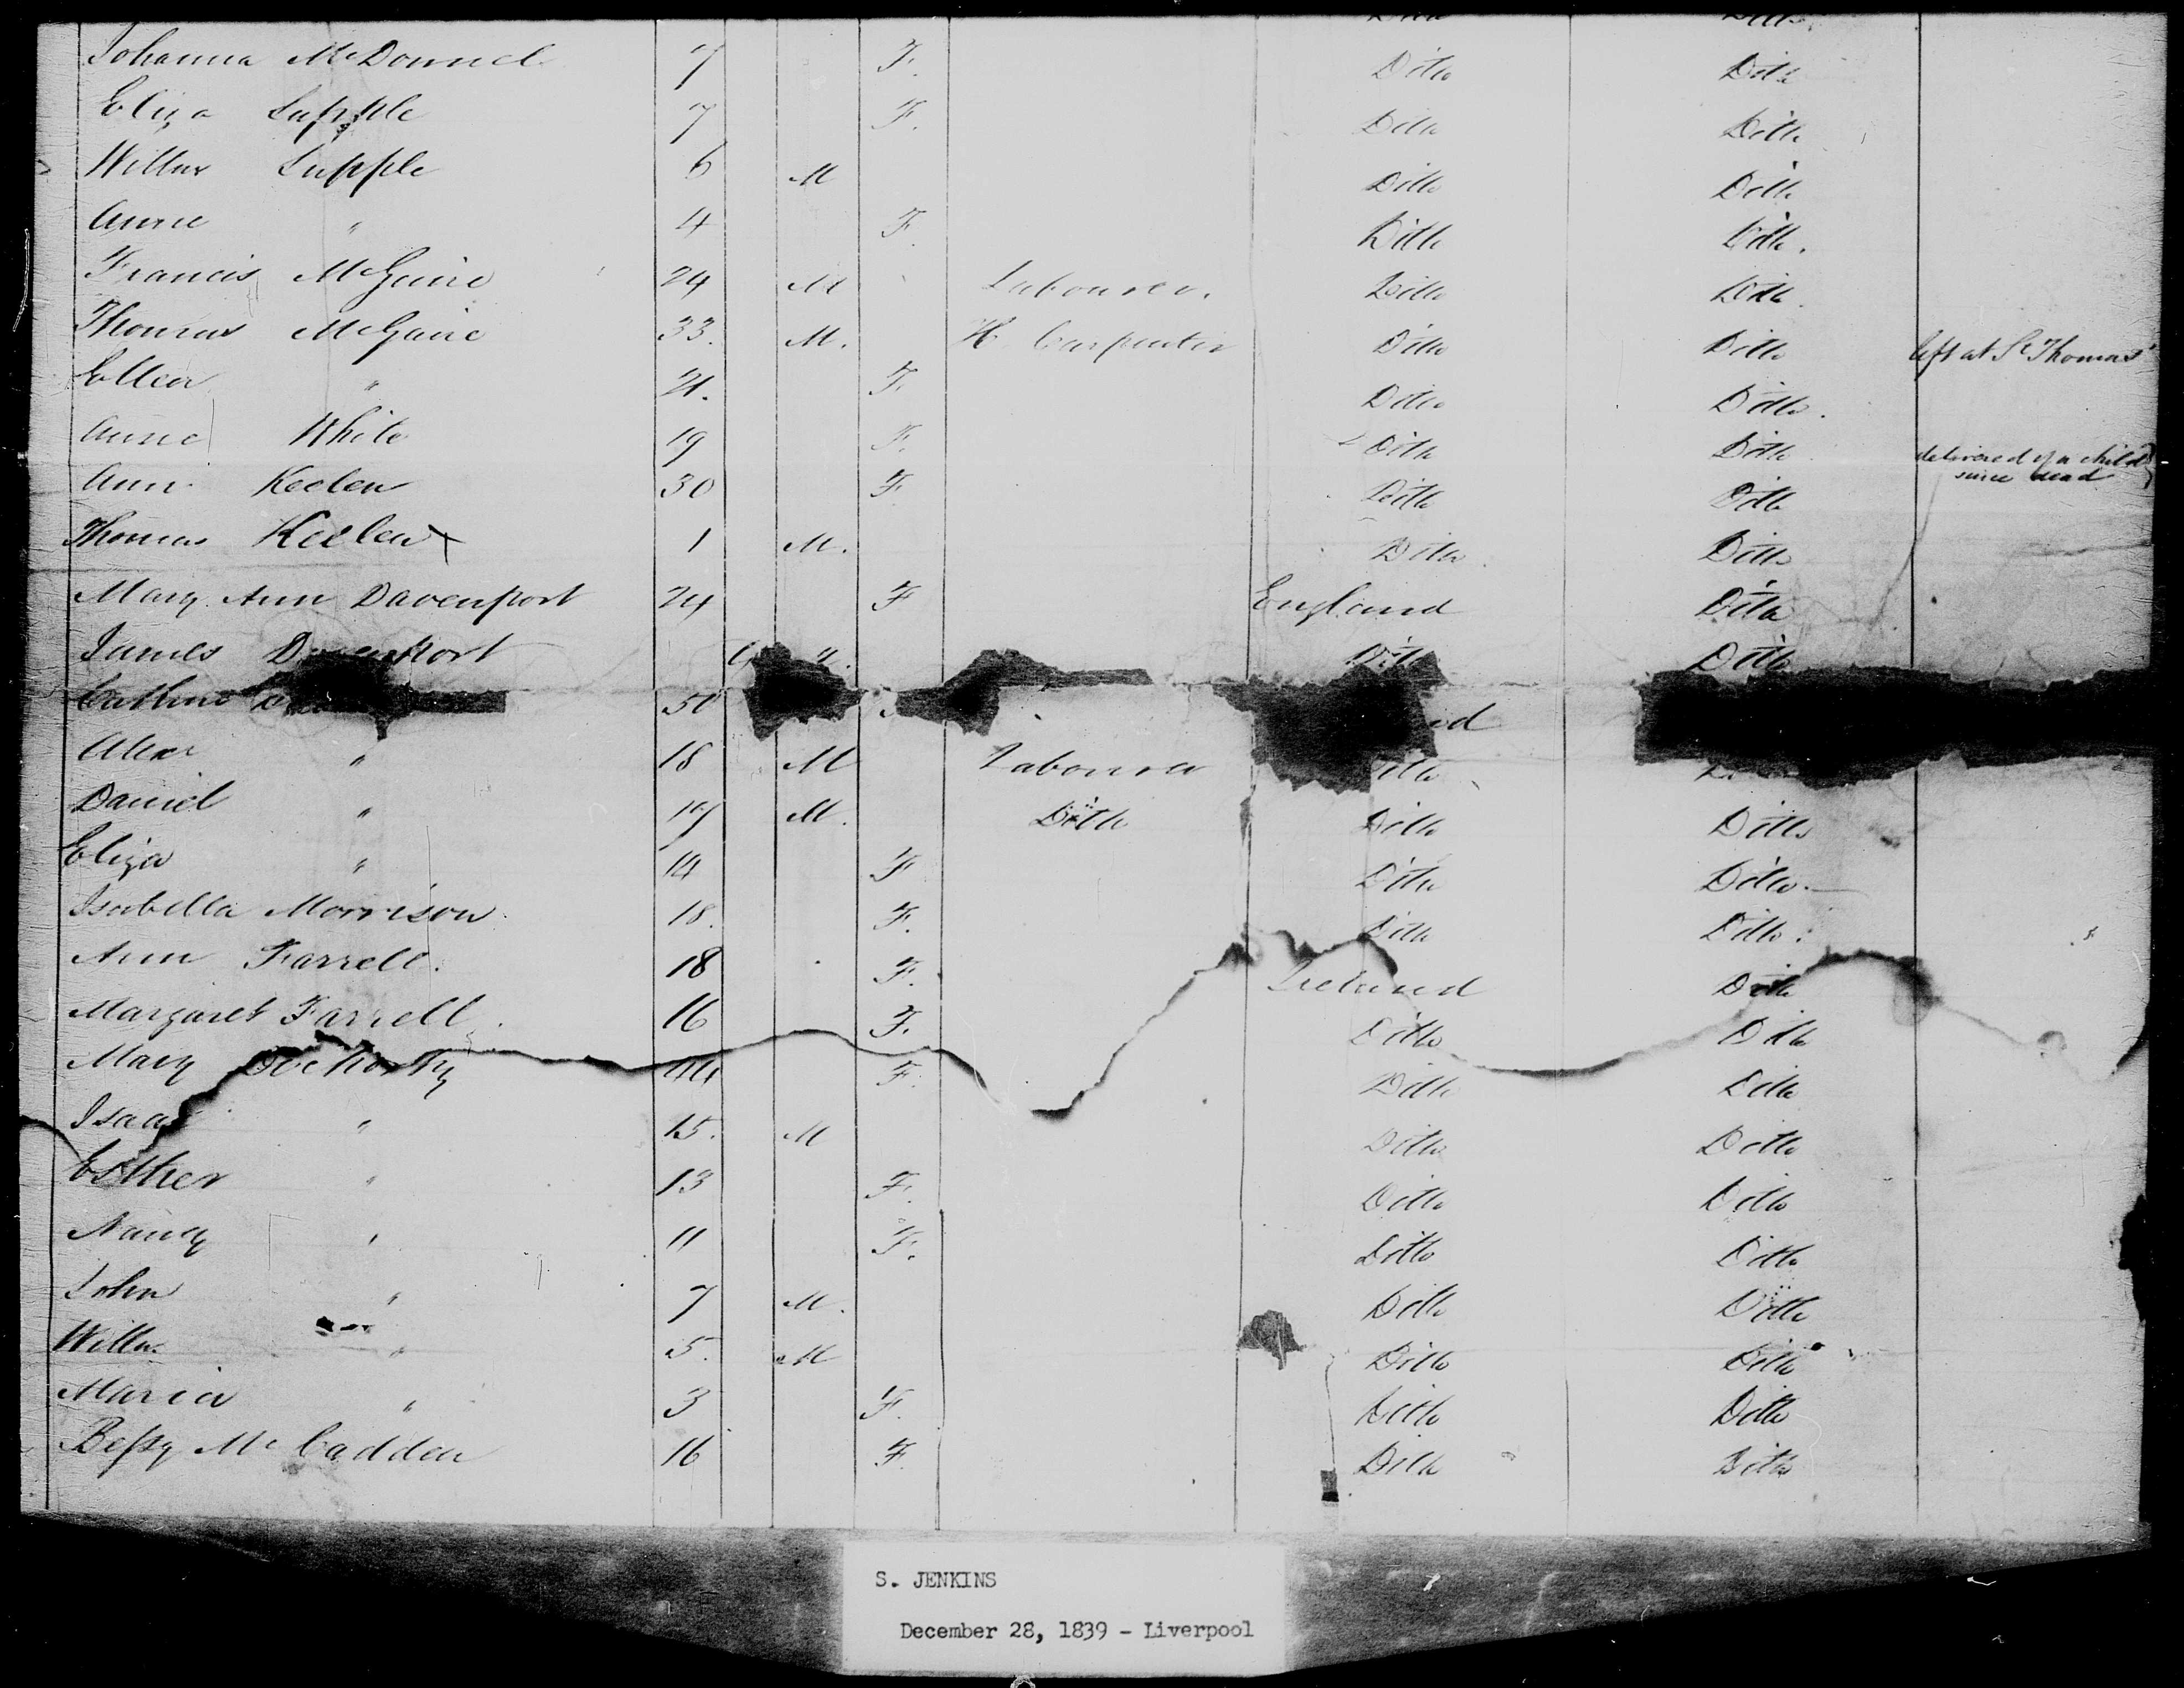 Johanna McDonnel 7 F. Ditto Ditto
Eliza Supple 7 F. Ditto Ditto
Willm Supple 6 M Ditto Ditto
Anne " 4 F. Ditto Ditto.
Francis McGuire 24 M Labourer. Ditto Ditto.
Thomas McGuire 33. M. H Carpenter Ditto Ditto left at St Thomas'
Ellen " 21. F Ditto Ditto.
Anne White 19 F. Ditto Ditto delivered of a child
since dead
Ann Keelen 30 F Ditto Ditto
Thomas Keelen 1 M. Ditto Ditto
Mary Ann Davenport 24 F England Ditto
James Davenport Ditto Ditto
50
Alexr " 18 M Labourer Ditto
Daniel " 17 M. Ditto Ditto Ditto
Eliza " 14 F Ditto Ditto.
Isabella Morrison 18. F. Ditto Ditto.
Ann Farrell. 18 F. Ireland Ditto
Margaret Farrell. 16 F. Ditto Ditto
Mary 44 F. Ditto Ditto
Isaac " 15. M Ditto Ditto
Esther " 13 F. Ditto Ditto
Nancy " 11 F. Ditto Ditto
John " 7 M. Ditto Ditto
Willm " 5. M Ditto Ditto
Maria " 3 F. Ditto Ditto
Bessy Mc Cadden 16 F. Ditto Ditto
S. JENKINS
December 28, 1839 - Liverpool